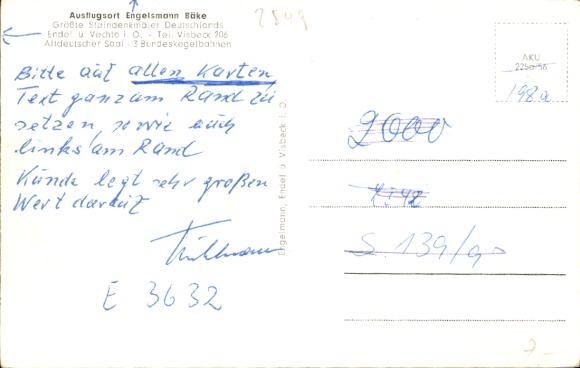 2509
Ausflugsort Engelsmann Bäke
Größte Steindenkmäler Deutschlands
Endel ü. Vechta i. O. - Tel. Visbek 206
Altdeutscher Saal - 3 Bundeskegelbahnen
Bitte auf allen Karten
Text ganz am Rand zu
setzen, sowie auch
links am Rand
Kunde legt sehr großen
Wert darauf
E 3632
Engelmann, Endel ü. Visbeck i. O.
AKU
198a
2000
S. 139/90
7.-